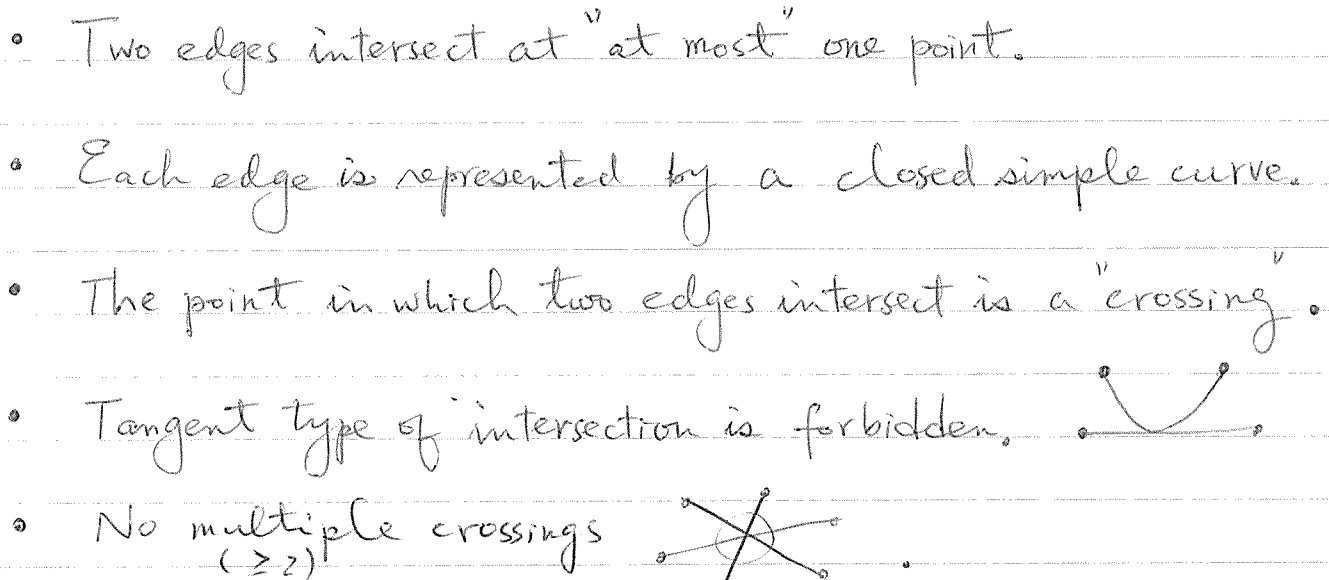 • Two edges intersect at "at most" one point.
• Each edge is represented by a closed simple curve.
• The point in which two edges intersect is a "crossing".
• Tangent type of intersection is forbidden.
• No multiple crossings
(≥ 2)